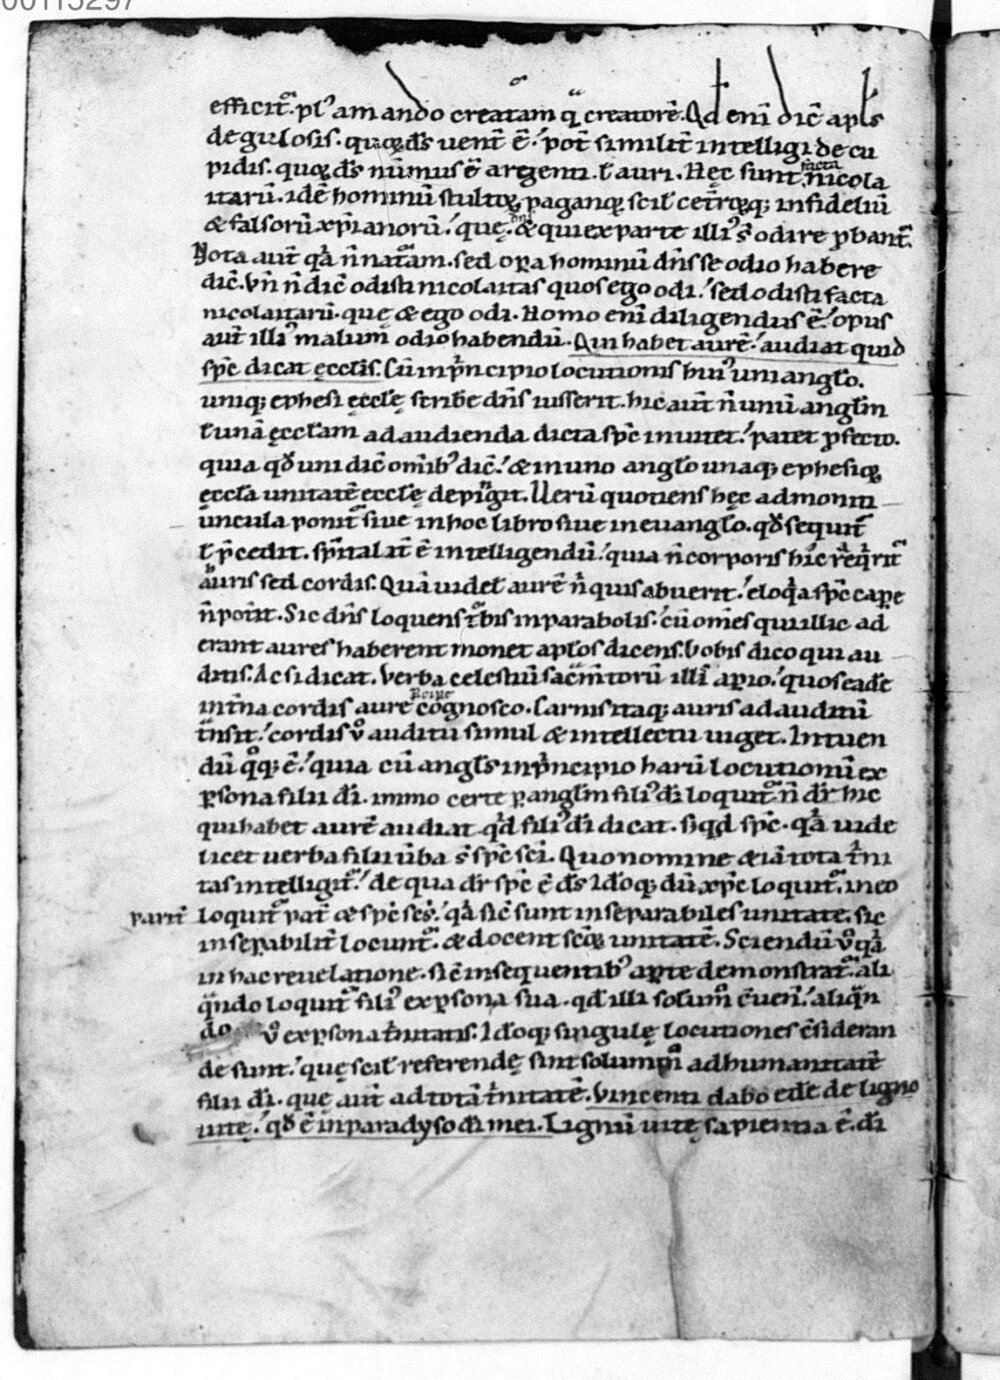 00115297
efficit᷑. plꝰ amando creat᷑am qͣ creatorē. Qd eni᷑ dic᷑ apl᷑s
de gulosis. quoꝝ ds̄ uent᷑ ē.ʼ pot᷑ similit᷑ intelligi de cu
pidis. quoꝝ ds̄ nūmus ē argenti. ł auri. Hęc sunt facta nicola
itarū. idē hominū stultoꝝ paganoꝝ scil᷑ cet᷑roꝝq; infideliū
& falsorū xp̄ianorū.ʼ quę. dn̄s & qui ex parte illiꝰ s᷑ odire ꝓbant᷑.
Nota aut᷑ qͥa n̄ nat᷑am. sed oꝑa hominū dn̄s se odio habere
dic᷑. Vn̄ n̄ dic᷑ odisti nicolaitas quos ego odi.ʼ sed odisti facta
nicolaitarū. quę & ego odi. Homo eni᷑ diligendus ē.ʼ opus
aut᷑ illiꝰ malum odio habendū. Qui habet aurē.ʼ audiat quid
sp̄c dicat ęccl᷑iis. Cū in pͥncipio locutionis huiꝰ uni angl᷑o.
uniq; ephesi ęccl᷑ę scribe᷑ dn̄s iusserit. hic aut᷑ n̄ unū angl᷑m
ł unā ęccl᷑am ad audienda dicta sp̄c inuitet.ʼ patet ꝓfecto.
quia qđ uni dic᷑ omībꝰ dic᷑.ʼ & in uno angl᷑o unaq; ephesioꝝ
ęccl᷑a unitatē ęccl᷑ę depingit. Uerū quotiens hęc admoniti
uncula ponit᷑ siue in hoc libro siue in euangl᷑o. qđ sequit᷑
ł p̄cedit. sp̄ital᷑it᷑ ē intelligendū.ʼ quia n̄ corporis hic reqͥrit᷑
auris sed cordis. Quā uidel᷑ aurē n̄ quis abuerit.ʼ eloqͥa sp̄c capꝑe
n̄ poterit. Sic dn̄s loquens t᷑bis in parabolis.ʼ cū omēs qui illic ad
erant aures haberent monet apl᷑os dicens. Vobis dico qui au
ditis. Ac si dicat. Verba celestiū sac᷑m̄torū illi᷑ aꝑio.ʼ quos eade᷑
int᷑na cordis aure percipe cognosco. Carnis itaq; auris ad auditū
t᷑nsit.ʼ cordis v᷑o auditu simul & intellectu uiget. Intuen
dū qͦq; ē.ʼ quia cū angl᷑s in pͥncipio harū locutionū ex
ꝑsona filii di᷑. immo certe ꝑ angl᷑m filiꝰ di᷑ loquit᷑. n̄ dr᷑ hic
qui habet aurē audiat. qͥd filiꝰ di᷑ dicat. s; qͥd sp̄c. qͥa uide
licet uerba filii ūba s᷑ sp̄c sc̄i. Quo nomine & iā tota t᷑ni
tas intelligit᷑.ʼ de qua dr᷑ sp̄c ē ds̄. Idoq; dū xp̄c loquit᷑. in eo
parit᷑ loquit᷑ pat᷑ & sp̄c sc̄s.ʼ qͥa sic᷑ sunt inseparabiles unitate. sic
inseꝑabilit᷑ locunt᷑. & docent sc̄oꝝ unitatē. Sciendū v᷑o qͥa
in hac reuelatione. sic᷑ in sequentibꝰ aꝑte demonstrat᷑. ali
qͣndo loquit᷑ filiꝰ ex ꝑsona sua. qđ illi solum᷑ c᷑uenit.ʼ aliqͣn
do v᷑o ex ꝑsona t᷑nitatis. Idoq; singulę locutiones c᷑sideran
de sunt.ʼ quę scil᷑ referendę sint solummͦ ad humanitatē
filii di᷑. quę aut᷑ ad totā t᷑nitatē. Vincenti dabo ede᷑ de ligno
uitę.ʼ qđ ē in paradyso di᷑ mei. Lignū uitę sapientia ē. di᷑